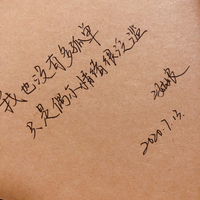 我也没有多孤单
只是偶尔情绪很泛滥
2020.7.13.